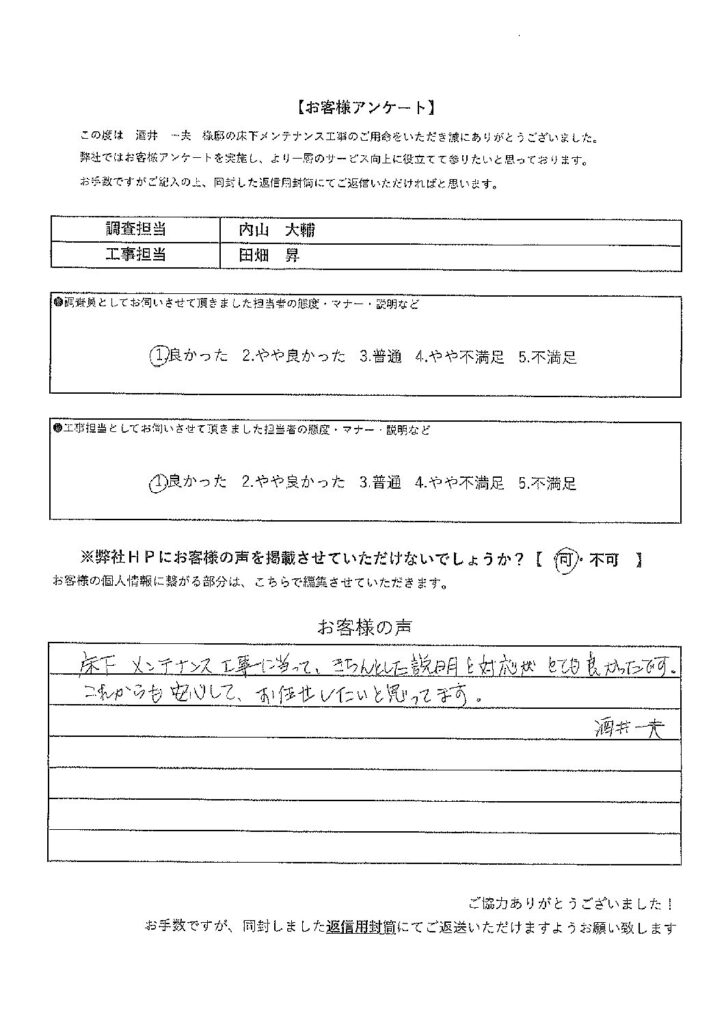 【お客様アンケート】
この度は 酒井 一夫 様邸の床下メンテナンス工事のご用命をいただき誠にありがとうございました。
弊社ではお客様アンケートを実施し、より一層のサービス向上に役立てて参りたいと思っております。
お手数ですがご記入の上、同封した返信用封筒にてご返信いただければと思います。
調査担当 内山 大輔
工事担当 田畑 昇
●調査員としてお伺いさせて頂きました担当者の態度・マナー・説明など
1.良かった 2.やや良かった 3.普通 4.やや不満足 5.不満足
●工事担当としてお伺いさせて頂きました担当者の態度・マナー・説明など
1.良かった 2.やや良かった 3.普通 4.やや不満足 5.不満足
※弊社HPにお客様の声を掲載させていただけないでしょうか?【 可・不可 】
お客様の個人情報に繋がる部分は、こちらで編集させていただきます。
お客様の声
床下 メンテナンス工事に当って、きちんとした説明と対応が とても良かったです。
これからも安心して、お任せしたいと思ってます。
酒井一夫
ご協力ありがとうございました!
お手数ですが、同封しました返信用封筒にてご返送いただけますようお願い致します